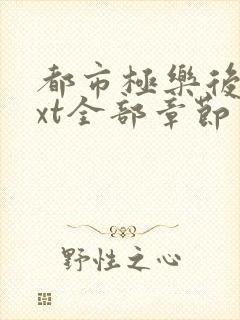 都市極樂後
xt全部章節
野性之心